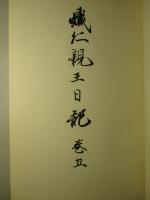 熾仁親王日記 巻五